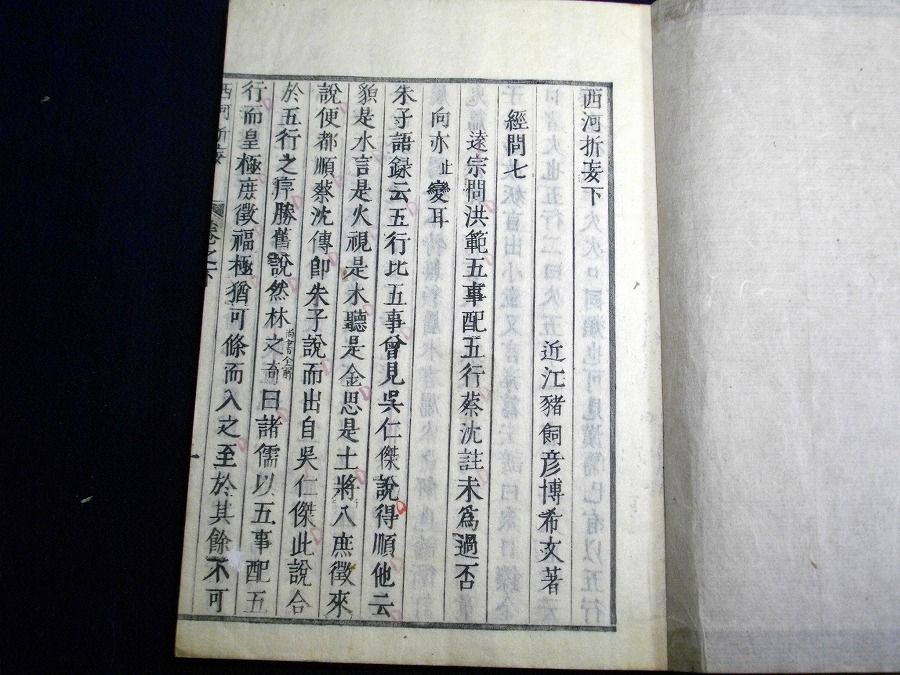 西河折妄下
近江豬飼彦博希文著
經問七
遠宗問洪範五事配五行蔡沈註未為過否
向亦止變耳
朱子語録云五行比五事曾見吳仁傑說得順他云
貌是水言是火視是木聽是金思是土將八庶徵來
說便都順蔡沈傳卽朱子說而出自吳仁傑此說合
於五行之序勝舊說然林之奇尚書全解曰諸儒以五事配五
行而皇極庶徵福極猶可條而入之至於其餘不可
西河折妄
卷之下
一